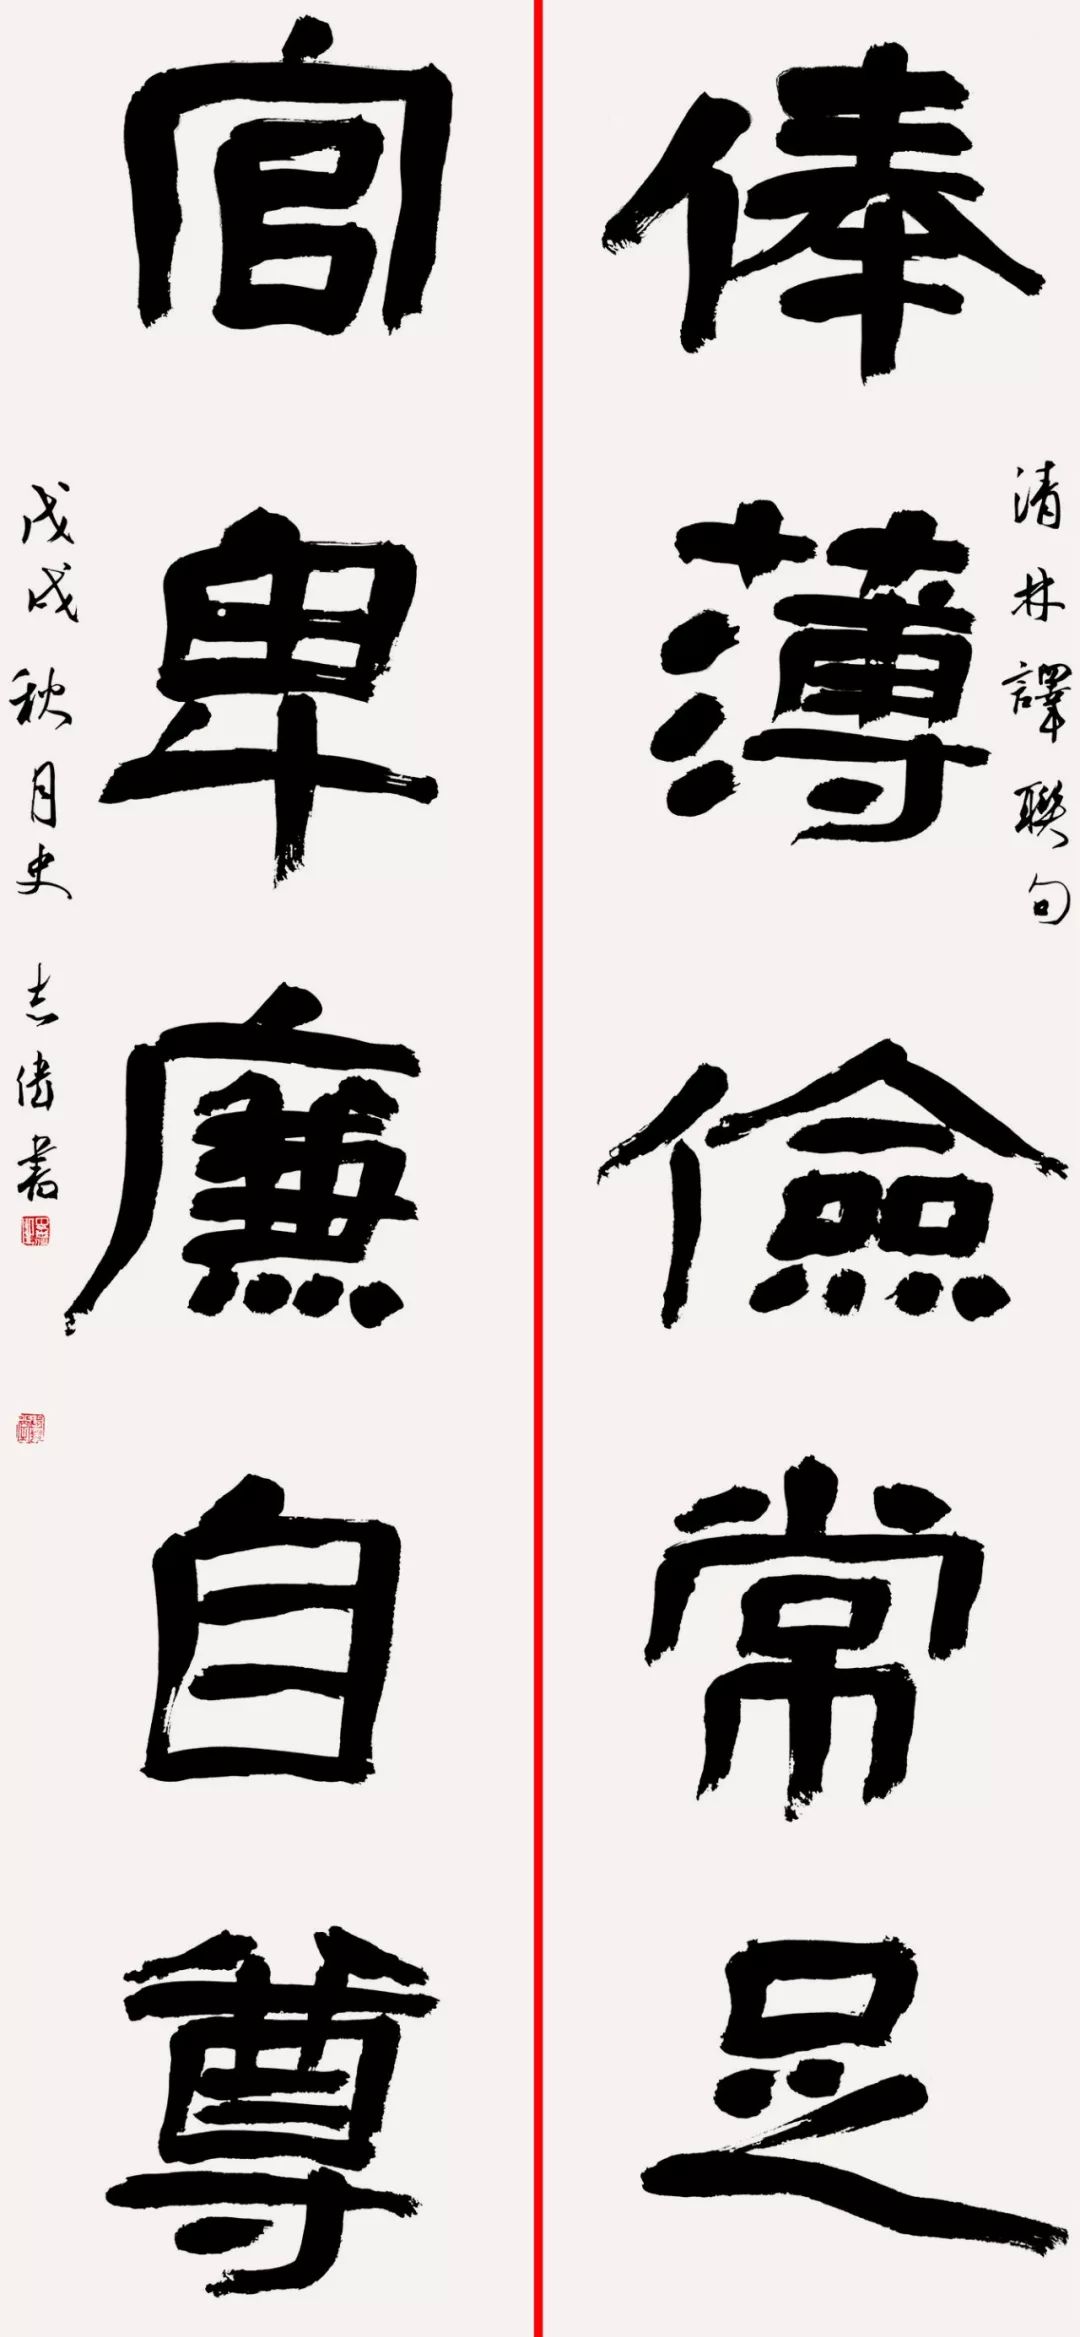 俸薄儉常足
清林譯聯句
官卑廉自尊
戊戌秋月史志伟書